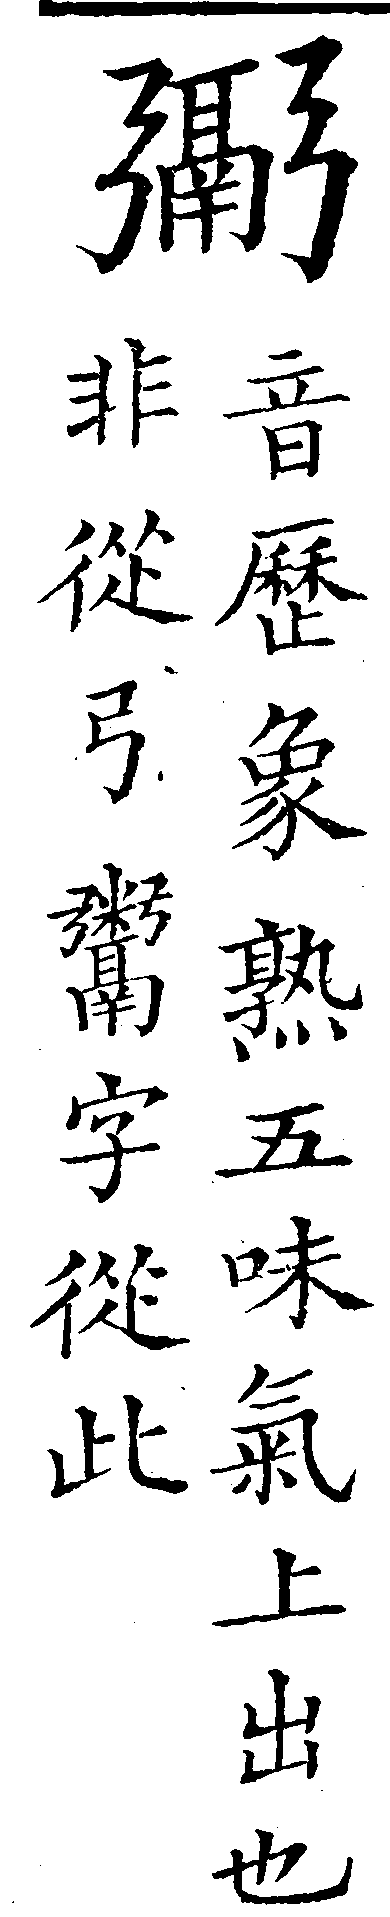 䰜
音歷象熟五味氣上出也
非從弓鬻字從此